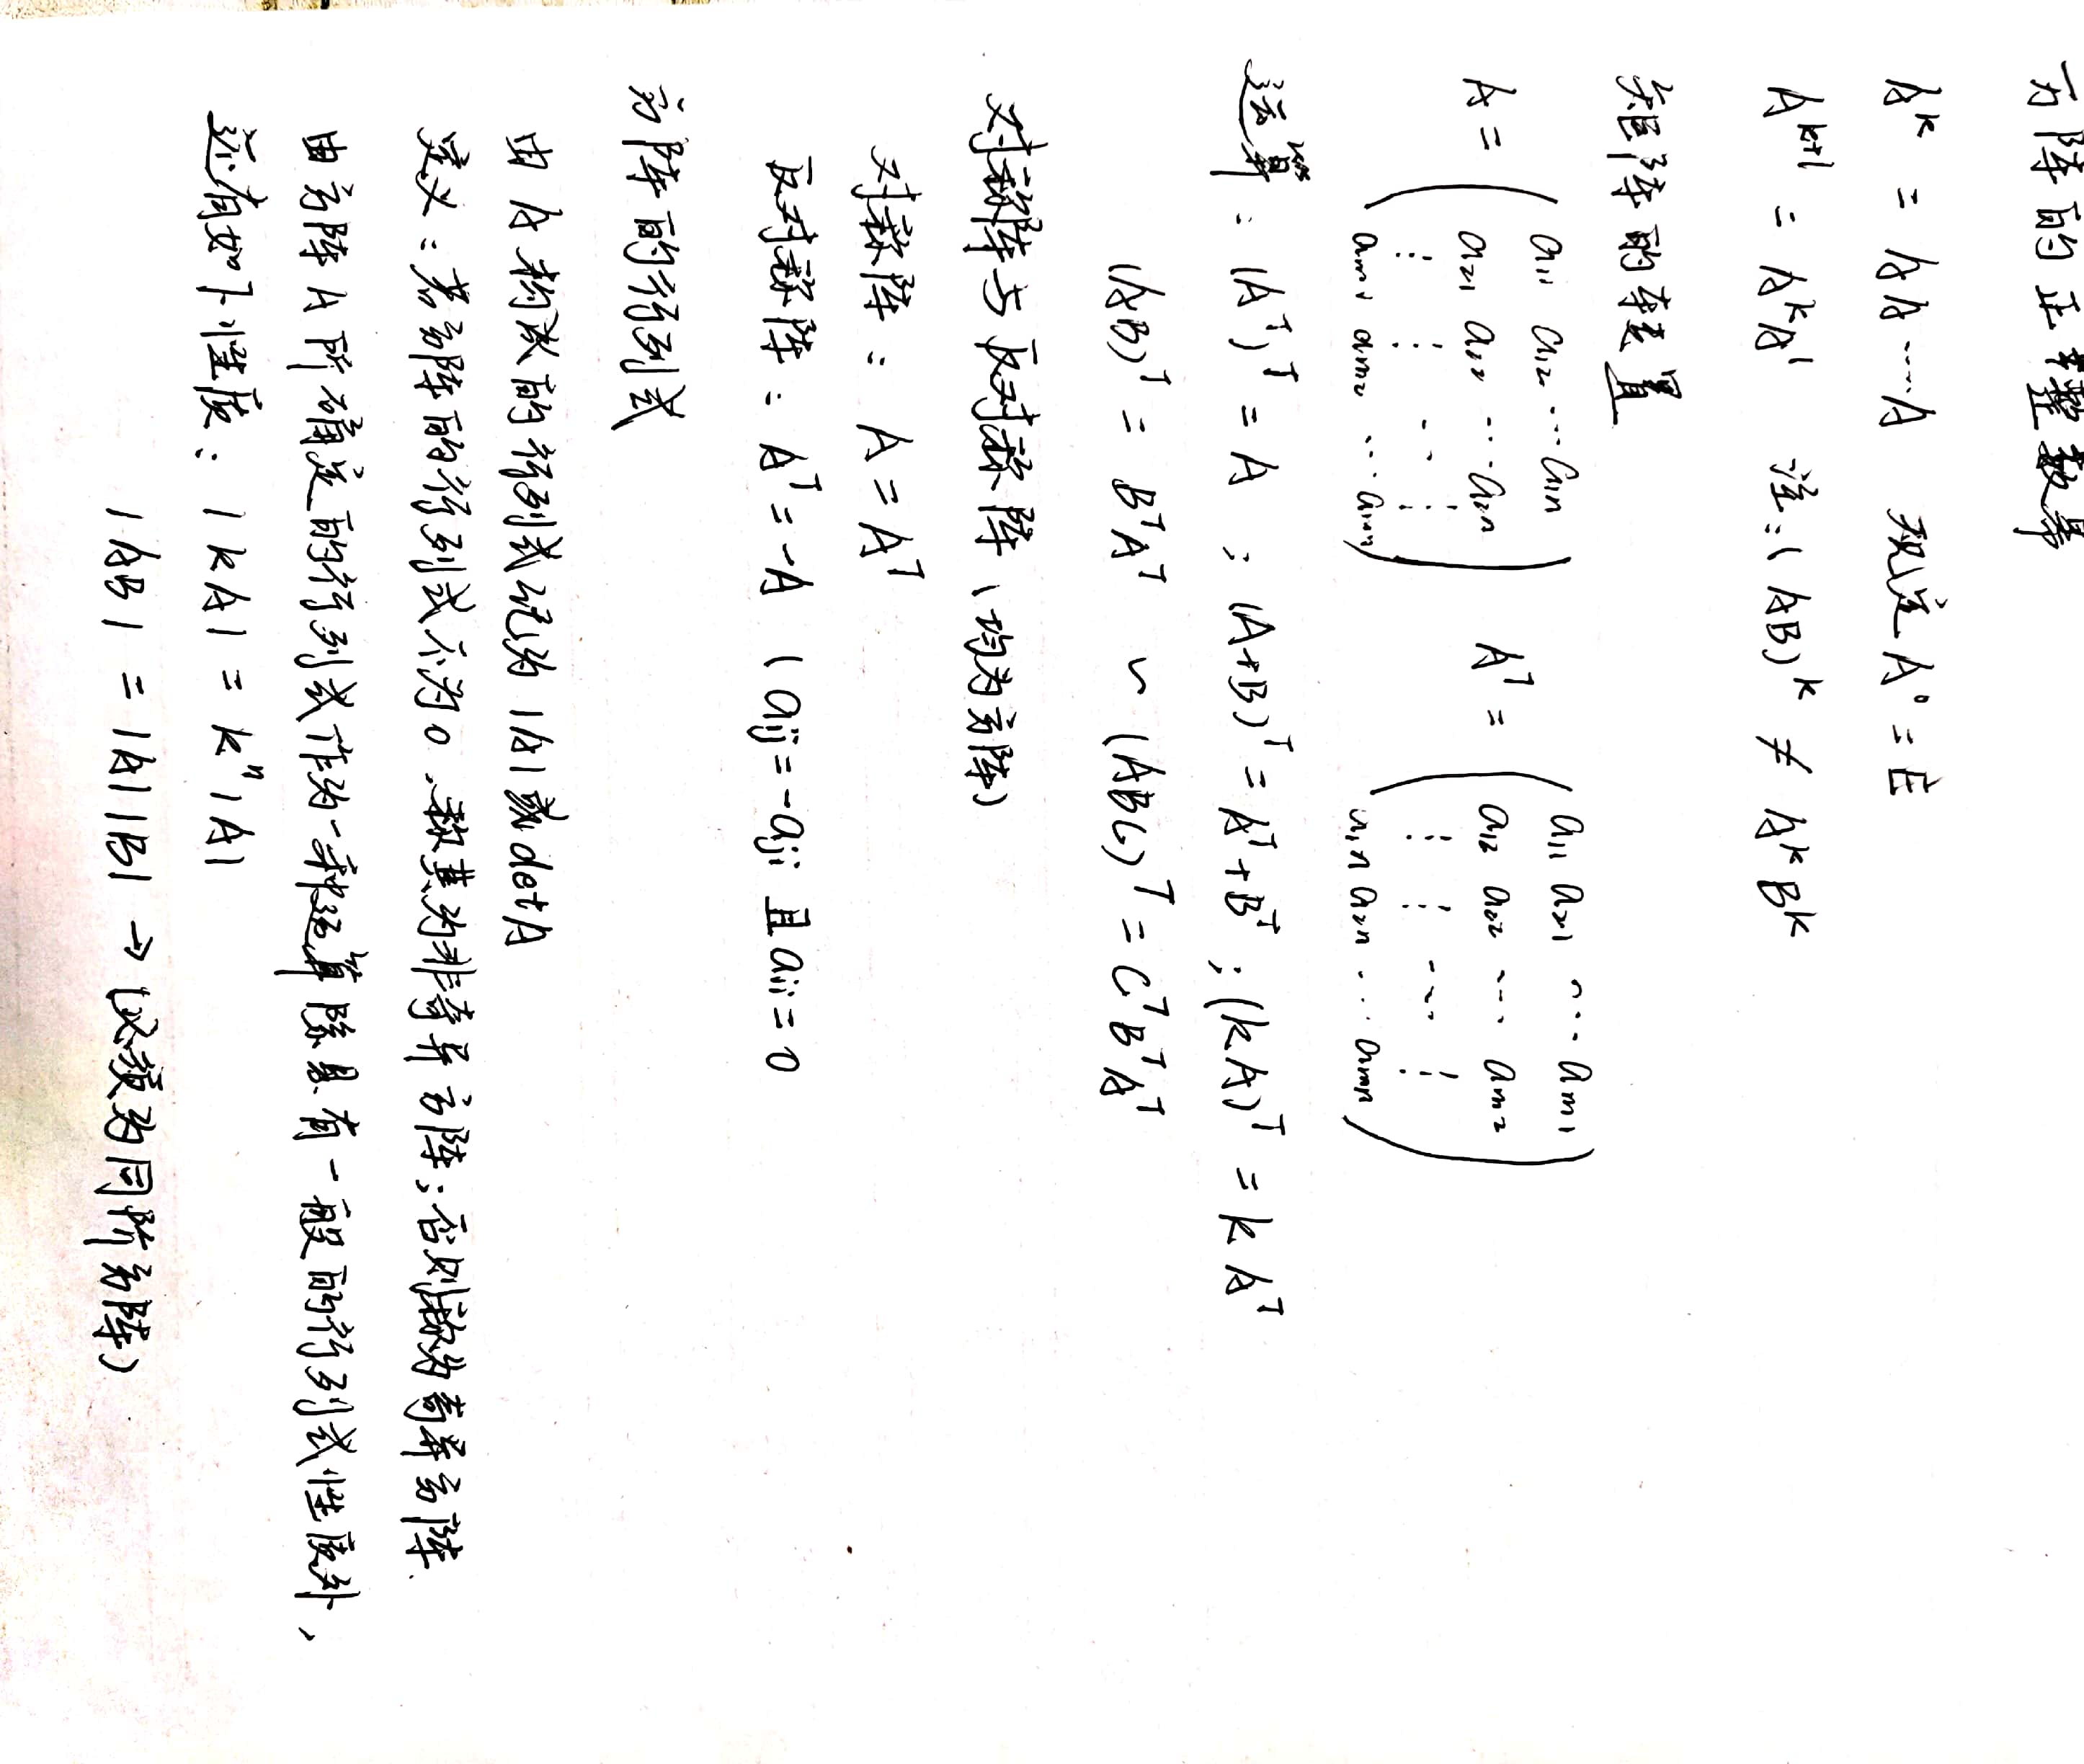 方阵的正整数幂
A^k = AA……A 规定 A^0 = E
A^{k+l} = A^k A^l 注:(AB)^k ≠ A^k B^k
矩阵的转置
A = ( a11 a12 ⋯ a1n A^T = ( a11 a21 ⋯ am1
a21 a22 ⋯ a2n a12 a22 ⋯ am2
⋮ ⋮ ⋯ ⋮ ⋮ ⋮ ⋯ ⋮
am1 am2 ⋯ amn ) a1n a2n ⋯ amn )
运算: (A^T)^T = A ; (A+B)^T = A^T + B^T ; (kA)^T = k A^T
(AB)^T = B^T A^T ~ (ABC)^T = C^T B^T A^T
对称阵与反对称阵(均为方阵)
对称阵: A = A^T
反对称阵: A^T = -A ( aij = -aji 且 aii = 0
方阵的行列式
由 A 构成的行列式记为 |A| 或 detA
定义:若方阵的行列式不为0,称其为非奇异方阵;否则称为奇异方阵.
由方阵A所确定的行列式作为一种运算除具有一般的行列式性质外,
还有如下性质: |kA| = k^n |A|
|AB| = |A||B| → (必须为同阶方阵)